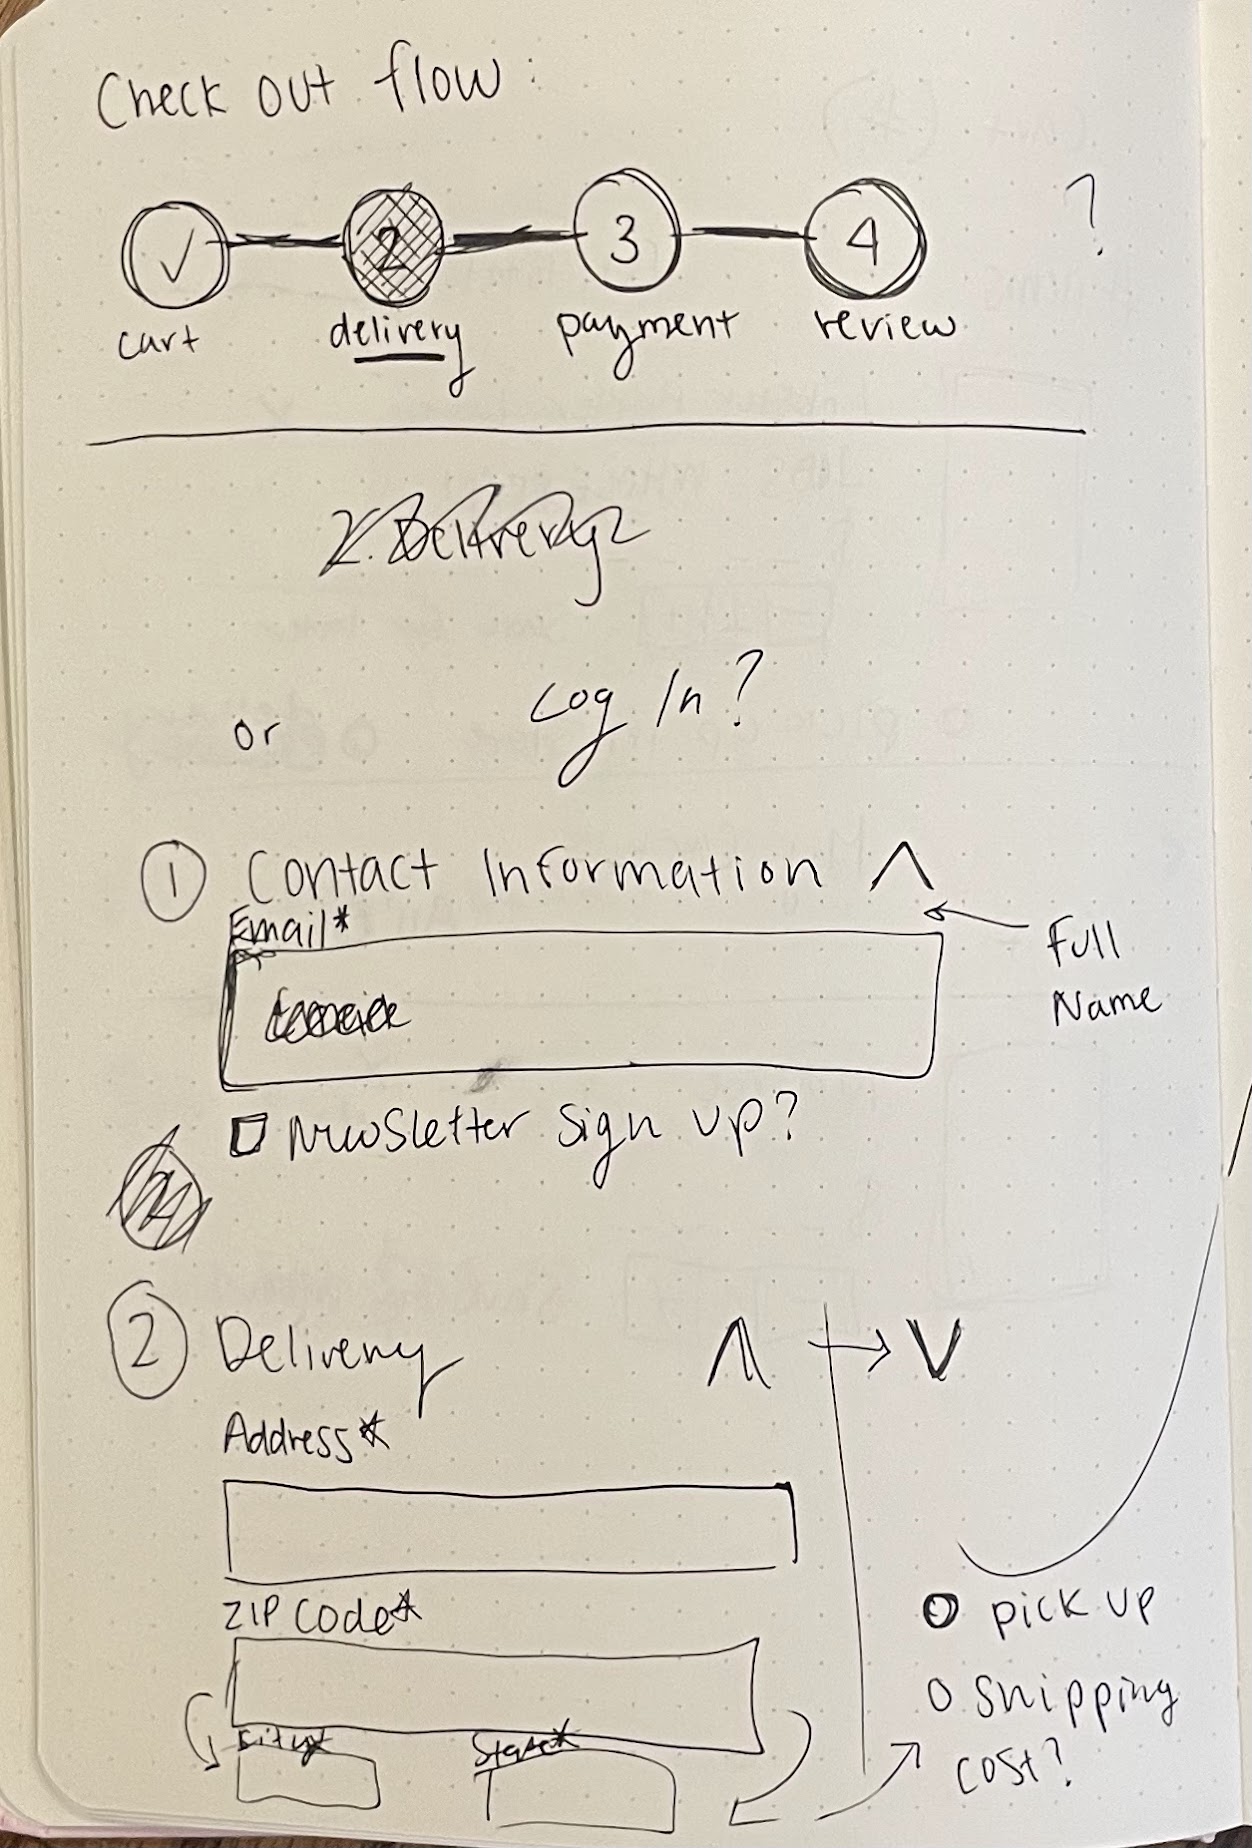 Check out flow :
✓ 2 3 4 ?
cart delivery payment review
2. Delivery
or Log In?
1 Contact Information ^
Email*
Full
Name
Newsletter sign up?
2 Delivery ^ → V
Address*
ZIP Code*
pick up
shipping
City* State*
cost?